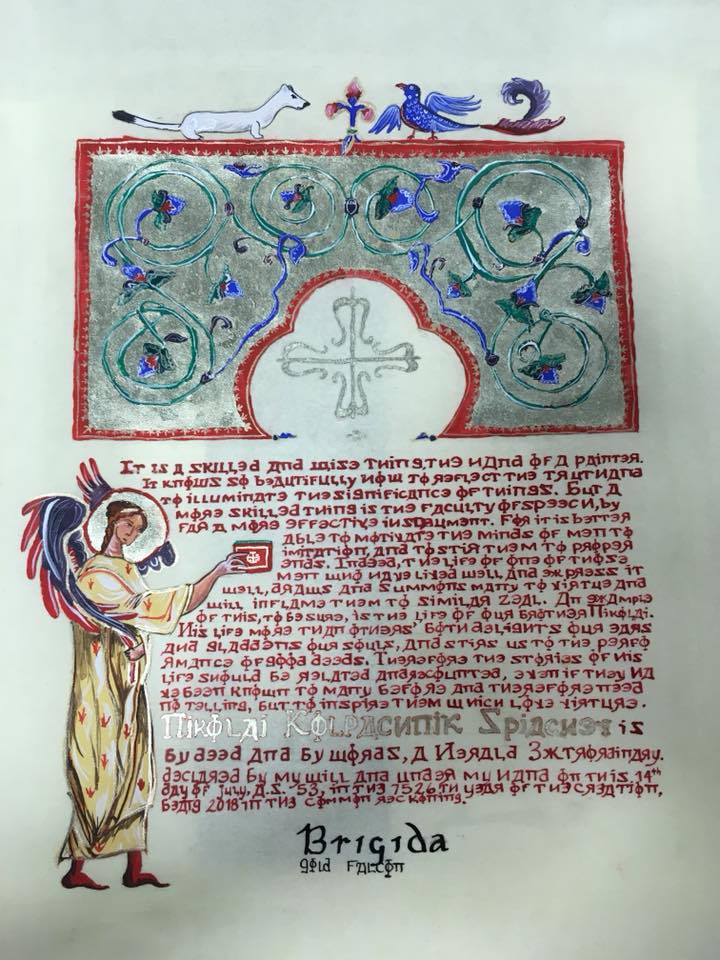 It is a skilled and wise thing, the hand of a painter.
It knows so beautifully how to reflect the truth and
to illuminate the significance of things. But a
more skilled thing is the faculty of speech, by
far a more effective instrument. For it is better
able to motivate the minds of men to
imitation, and to stir them to
Indeed, the life of one of these
men who have lived well and express it
well, draws and summons many to virtue and
will inflame them to similar zeal. An example
of this, to be sure, is the life of our brother Nikolai.
His life more than others' both delights our ears
and gladdens our souls, and stirs us to the perfo
rmance of good deeds. Therefore the stories of his
life should be related and recounted, even if they ha
ve been known to many before and therefore need
no telling, but to inspire them which love virtues.
Nikolai Kolpachnik Spiachey is
by deed and by words, a Herald Extraordinary.
declared by my will and under my hand on this 14th
day of July, A.S. 53, in the 7526th year of the creation,
being 2018 in the common reckoning.
Brigida
Gold Falcon